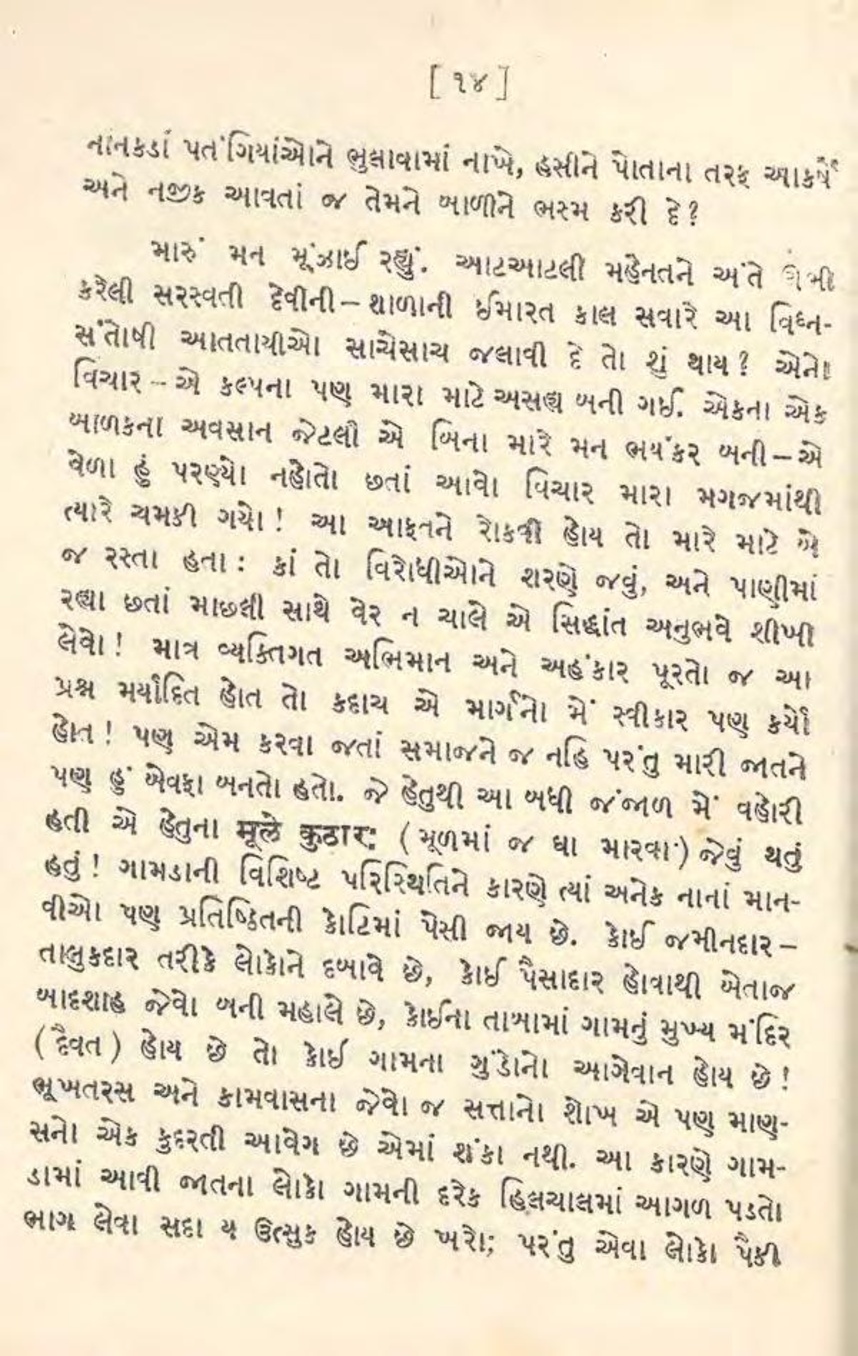 [ ૧૪ ]
નાનકડાં પતંગિયાંઓને ભુલાવામાં નાખે, હસીને પોતાના તરફ આકર્ષે
અને નજીક આવતાં જ તેમને બાળીને ભસ્મ કરી દે?
મારું મન મૂંઝાઈ રહ્યું. આટઆટલી મહેનતને અંતે ઊભી
કરેલી સરસ્વતી દેવીની – શાળાની ઈમારત કાલ સવારે આ વિઘ્ન-
સંતોષી આતતાયીઓ સાચેસાચ જલાવી દે તો શું થાય? એનો
વિચાર – એ કલ્પના પણ મારા માટે અસહ્ય બની ગઈ. એકના એક
બાળકના અવસાન જેટલી એ બિના મારે મન ભયંકર બની – એ
વેળા હું પરણ્યો નહોતો છતાં આવો વિચાર મારા મગજમાંથી
ત્યારે ચમકી ગયો! આ આફતને રોકવી હોય તો મારે માટે બે
જ રસ્તા હતા : કાં તો વિરોધીઓને શરણે જવું, અને પાણીમાં
રહ્યા છતાં માછલી સાથે વેર ન ચાલે એ સિદ્ધાંત અનુભવે શીખી
લેવો! માત્ર વ્યક્તિગત અભિમાન અને અહંકાર પૂરતો જ આ
પ્રશ્ન મર્યાદિત હોત તો કદાચ એ માર્ગનો મેં સ્વીકાર પણ કર્યો
હોત! પણ એમ કરવા જતાં સમાજને જ નહિ પરંતુ મારી જાતને
પણ હું બેવફા બનતો હતો. જે હેતુથી આ બધી જંજાળ મેં વહોરી
હતી એ હેતુના मूले कुठारः (મૂળમાં જ ઘા મારવા) જેવું થતું
હતું! ગામડાની વિશિષ્ટ પરિસ્થિતિને કારણે ત્યાં અનેક નાનાં માન-
વીઓ પણ પ્રતિષ્ઠિતની કોટિમાં પેસી જાય છે. કોઈ જમીનદાર –
તાલુકદાર તરીકે લોકોને દબાવે છે, કોઈ પૈસાદાર હોવાથી બેતાજ
બાદશાહ જેવો બની મહાલે છે, કોઈના તાબામાં ગામનું મુખ્ય મંદિર
(દૈવત) હોય છે તો કોઈ ગામના ગુંડાનો આગેવાન હોય છે!
ભૂખતરસ અને કામવાસના જેવો જ સત્તાનો શોખ એ પણ માણ-
સનો એક કુદરતી આવેગ છે એમાં શંકા નથી. આ કારણે ગામ-
ડામાં આવી જાતના લોકો ગામની દરેક હિલચાલમાં આગળ પડતો
ભાગ લેવા સદા ય ઉત્સુક હોય છે ખરો; પરંતુ એવા લોકો પૈકી